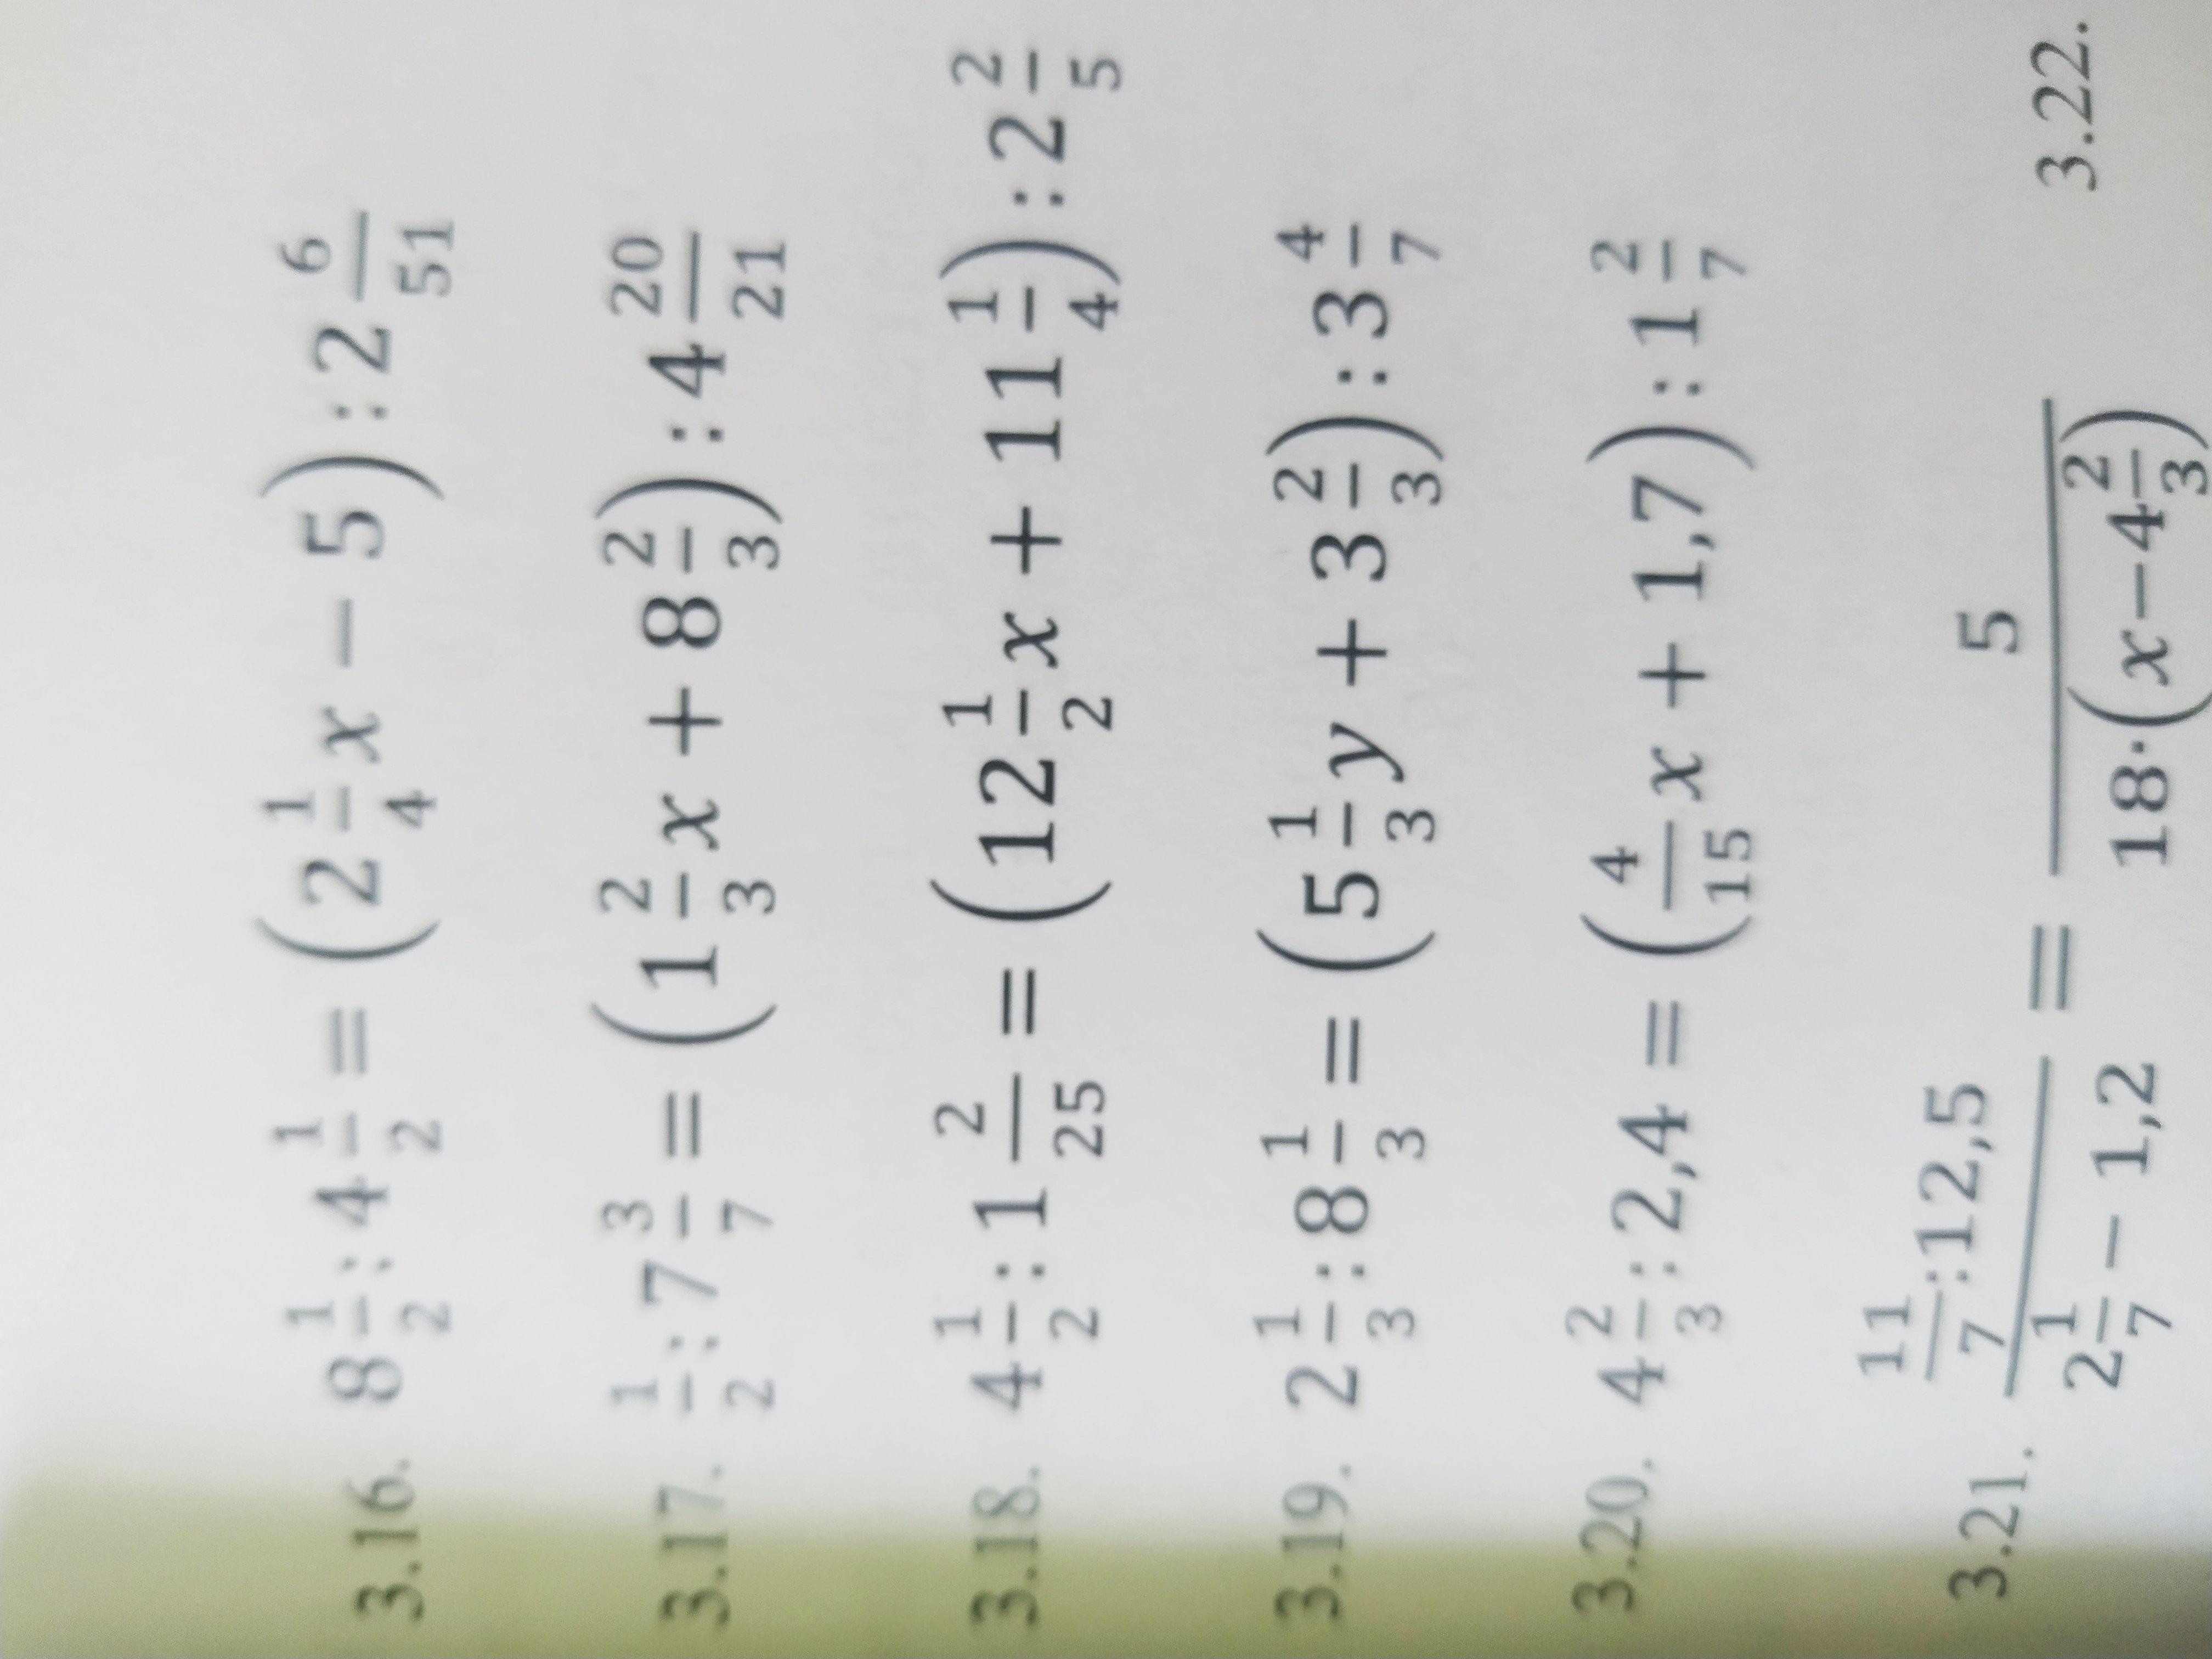 3.16. 8 1/2 : 4 1/2 = (2 1/4 x − 5) : 2 6/51
3.17. 1/2 : 7 3/7 = (1 2/3 x + 8 2/3) : 4 20/21
3.18. 4 1/2 : 1 2/25 = (12 1/2 x + 11 1/4) : 2 2/5
3.19. 2 1/3 : 8 1/3 = (5 1/3 y + 3 2/3) : 3 4/7
3.20. 4 2/3 : 2,4 = (4/15 x + 1,7) : 1 2/7
3.21. (11/7 : 12,5)/(2 1/7 − 1,2) = 5/(18·(x−4 2/3)) 3.22.